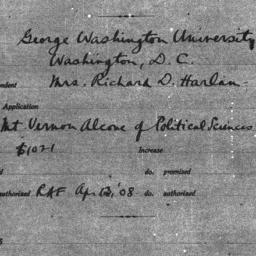 George Washington University
Washington, D. C.
ndent Mrs. Richard D. Harlan
Application
Mt Vernon Alcone of Political Sciences
$1021 Increase
d do. promised
authorized RHF Ap. 13, '08 do. authorized
s